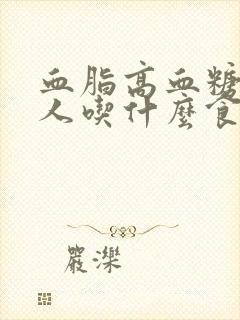 血脂高血糖
人喫什麼食
嚴濼